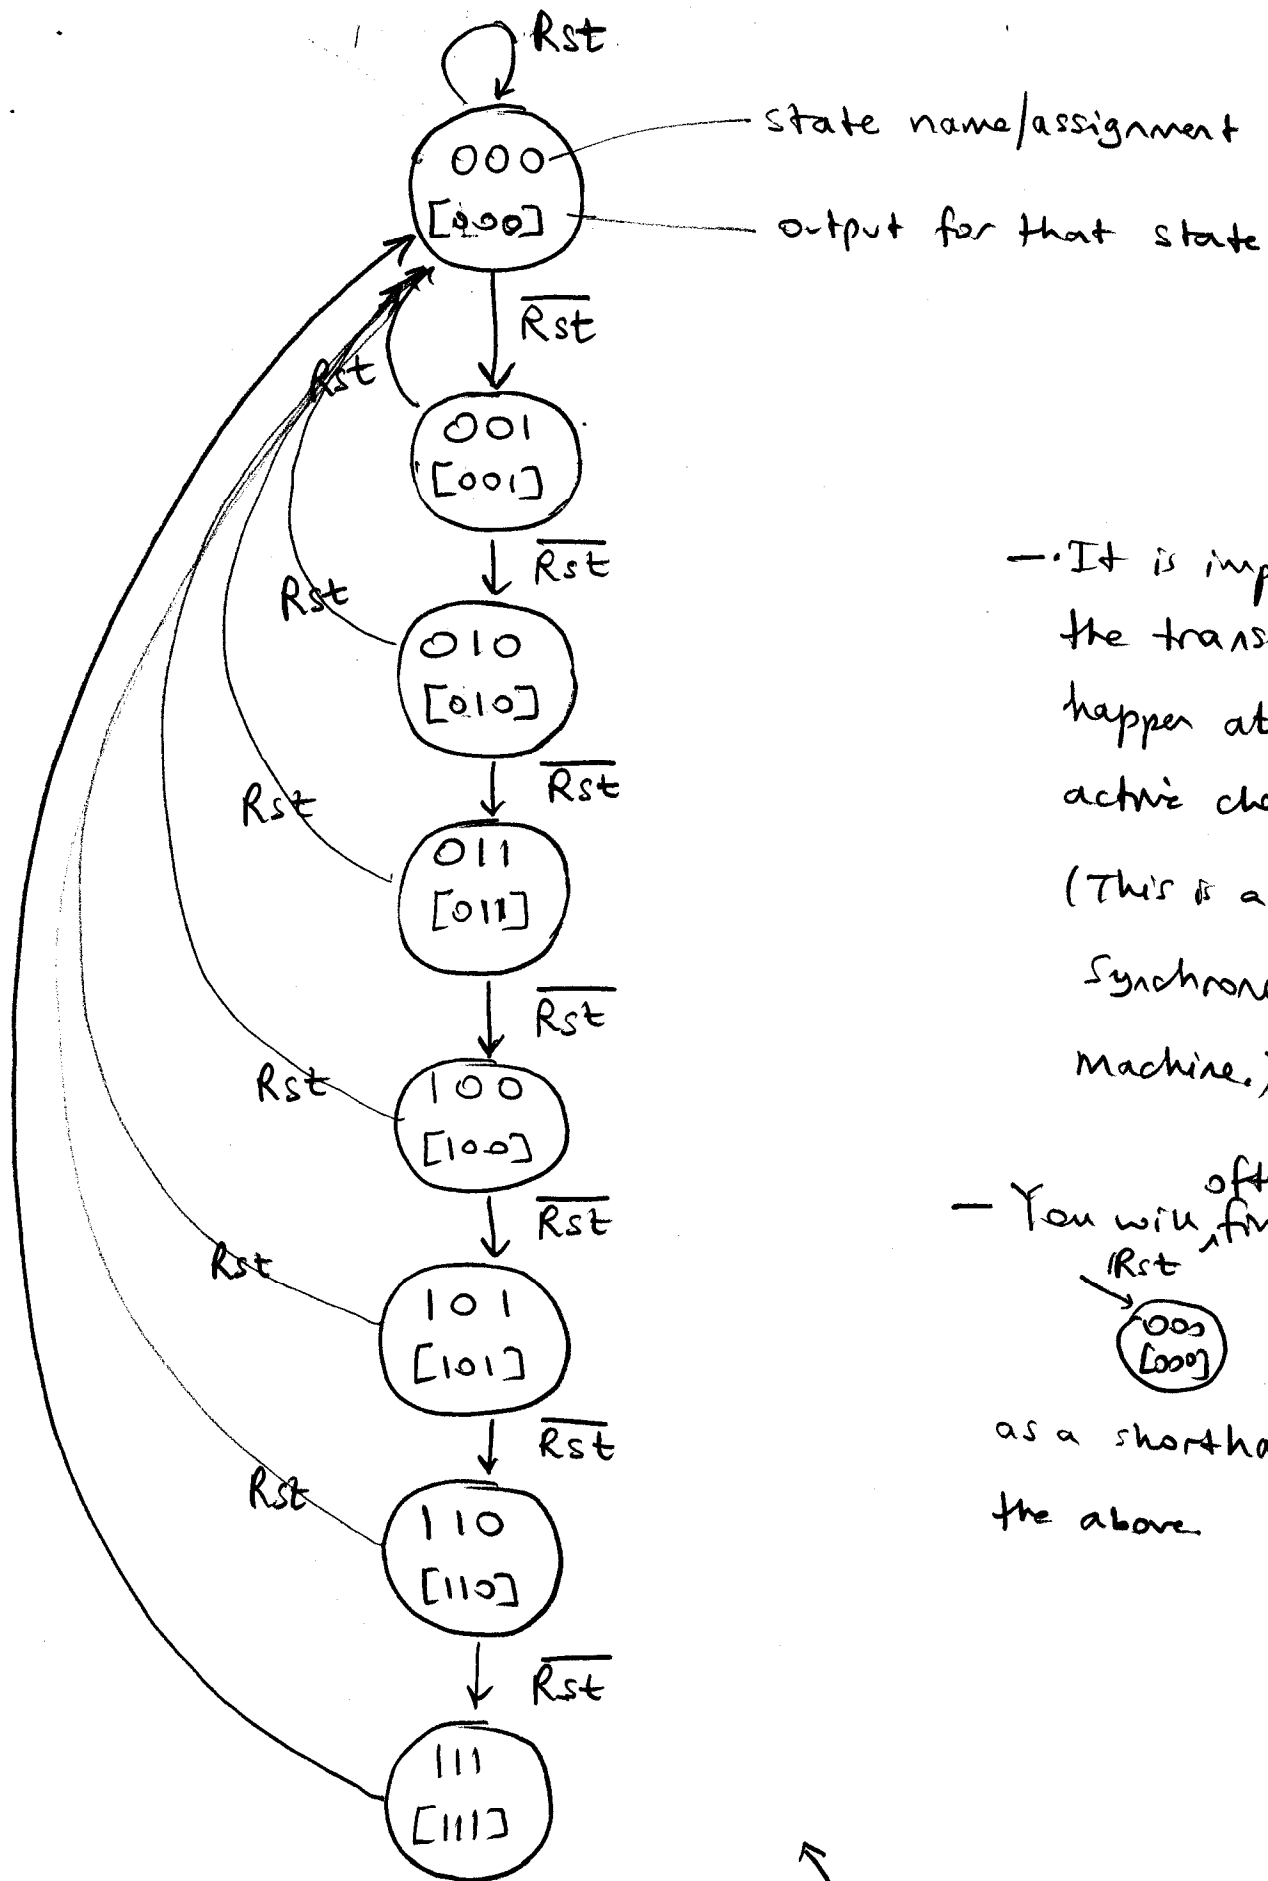 Rst
000
[000]
state name/assignment
output for that state
R̅s̅t̅
Rst
001
[001]
R̅s̅t̅
Rst
010
[010]
R̅s̅t̅
Rst
011
[011]
R̅s̅t̅
Rst
100
[100]
R̅s̅t̅
Rst
101
[101]
R̅s̅t̅
Rst
110
[110]
R̅s̅t̅
111
[111]
- It is imp
the trans
happen at
active
(This is a
Synchron
Machine.)
- You will
Rst
000
[000]
as a shortha
the above.